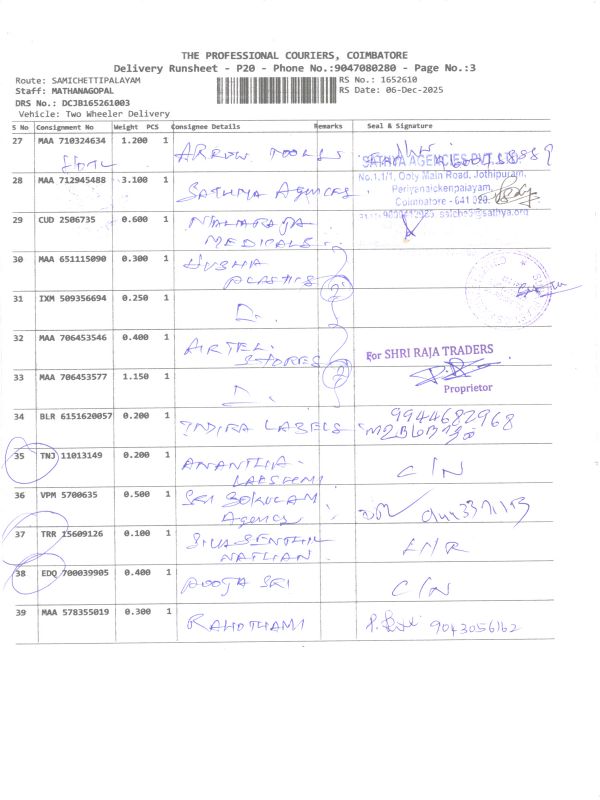 THE PROFESSIONAL COURIERS, COIMBATORE
Delivery Runsheet - P20 - Phone No.:9047080280 - Page No.:3
Route: SAMICHETTIPALAYAM
RS No.: 1652610
Staff: MATHANAGOPAL
RS Date: 06-Dec-2025
DRS No.: DCJB165261003
Vehicle: Two Wheeler Delivery
S No Consignment No Weight PCS Consignee Details Remarks Seal & Signature
27 MAA 710324634 1.200 1 ARROW TOOLS
SATHYA AGENCIES PVT. LTD.
No.1.1/1, Ooty Main Road, Jothipuram,
28 MAA 712945488 3.100 1 SATHYA AGENCIES
Periyanaickenpalayam,
Coimbatore - 641 020.
29 CUD 2506735 0.600 1 NATARAJA
MEDICALS
30 MAA 651115090 0.300 1
PLASTICS 2
31 IXM 509356694 0.250 1 D.
32 MAA 706453546 0.400 1 AIRTEL
STORES
For SHRI RAJA TRADERS
33 MAA 706453577 1.150 1 D. 2
Proprietor
34 BLR 6151620057 0.200 1 INDIRA LABELS 9944682968
35 TNJ 11013149 0.200 1 ANANTHA
LAKSHMI C/N
36 VPM 5700635 0.500 1 SRI GOKULAM
Agency
37 TRR 15609126 0.100 1 SIVA SENTHIL
NATHAN
38 EDQ 700039905 0.400 1 POOJA SRI C/N
39 MAA 578355019 0.300 1 9043056162